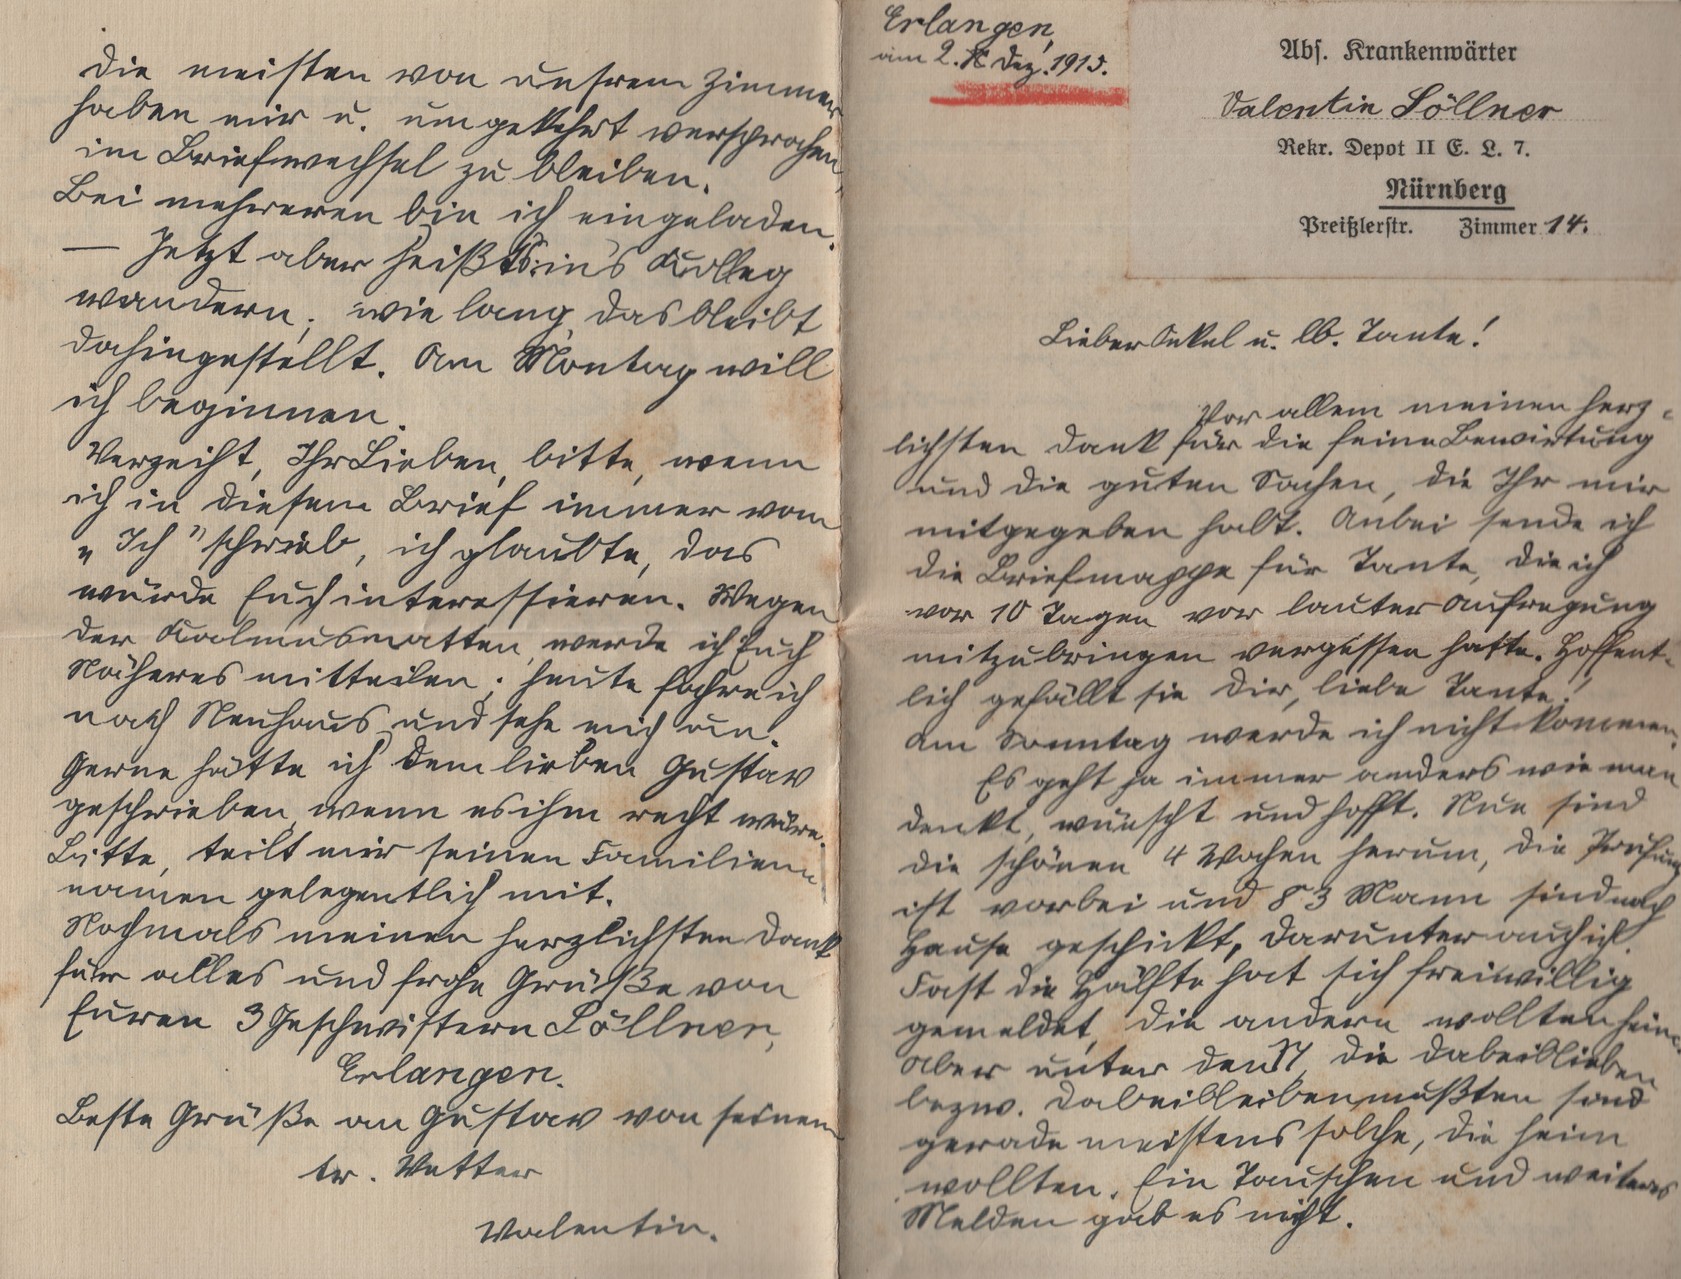 Erlangen,
am 2. Dez. 1915.
Abs. Krankenwärter
Valentin Söllner
Rekr. Depot II E. L. 7.
Nürnberg
Preißlerstr. Zimmer 14.
Lieber Onkel u. lb. Tante!
Vor allem meinen herz-
lichsten Dank für die feine Bewirtung
und die guten Sachen, die Ihr mir
mitgegeben habt. Anbei sende ich
die Briefmappe für Tante, die ich
vor 10 Tagen vor lauter Aufregung
mitzubringen vergessen hatte. Hoffent-
lich gefällt sie Dir, liebe Tante!
Am Sonntag werde ich nicht kommen.
Es geht ja immer anders wie man
denkt, wünscht und hofft. Nun sind
die schönen 4 Wochen herum, die Prüfung
ist vorbei und 83 Mann sind nach
Hause geschickt, darunter auch ich.
Fast die Hälfte hat sich freiwillig
gemeldet, die andern wollten heim.
Aber unter den 17, die dabeiblieben
bezw. dabeibleiben mußten sind
gerade meistens solche, die heim
wollten. Ein Tauschen und weiteres
Melden gab es nicht.
Die meisten von unsrem Zimmer
haben mir u. umgekehrt versprochen,
im Briefwechsel zu bleiben.
Bei mehreren bin ich eingeladen.
— Jetzt aber heißt's: in's Kolleg
wandern; wie lang, das bleibt
dahingestellt. Am Montag will
ich beginnen.
Verzeiht, Ihr Lieben, bitte, wenn
ich in diesem Brief immer vom
„Ich" schrieb, ich glaubte, das
würde Euch interessieren. Wegen
der Kalmusmatten werde ich Euch
Näheres mitteilen; heute fahre ich
nach Neuhaus und sehe mich um.
Gerne hätte ich dem lieben Gustav
geschrieben, wenn es ihm recht wäre.
Bitte, teilt mir seinen Familien-
namen gelegentlich mit.
Nochmals meinen herzlichsten Dank
für alles und frohe Grüße von
Euren 3 Geschwistern Söllner,
Erlangen.
Beste Grüße an Gustav von seinem
tr. Vetter
Valentin.